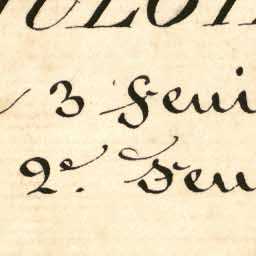 3 Feui
2e. Feu